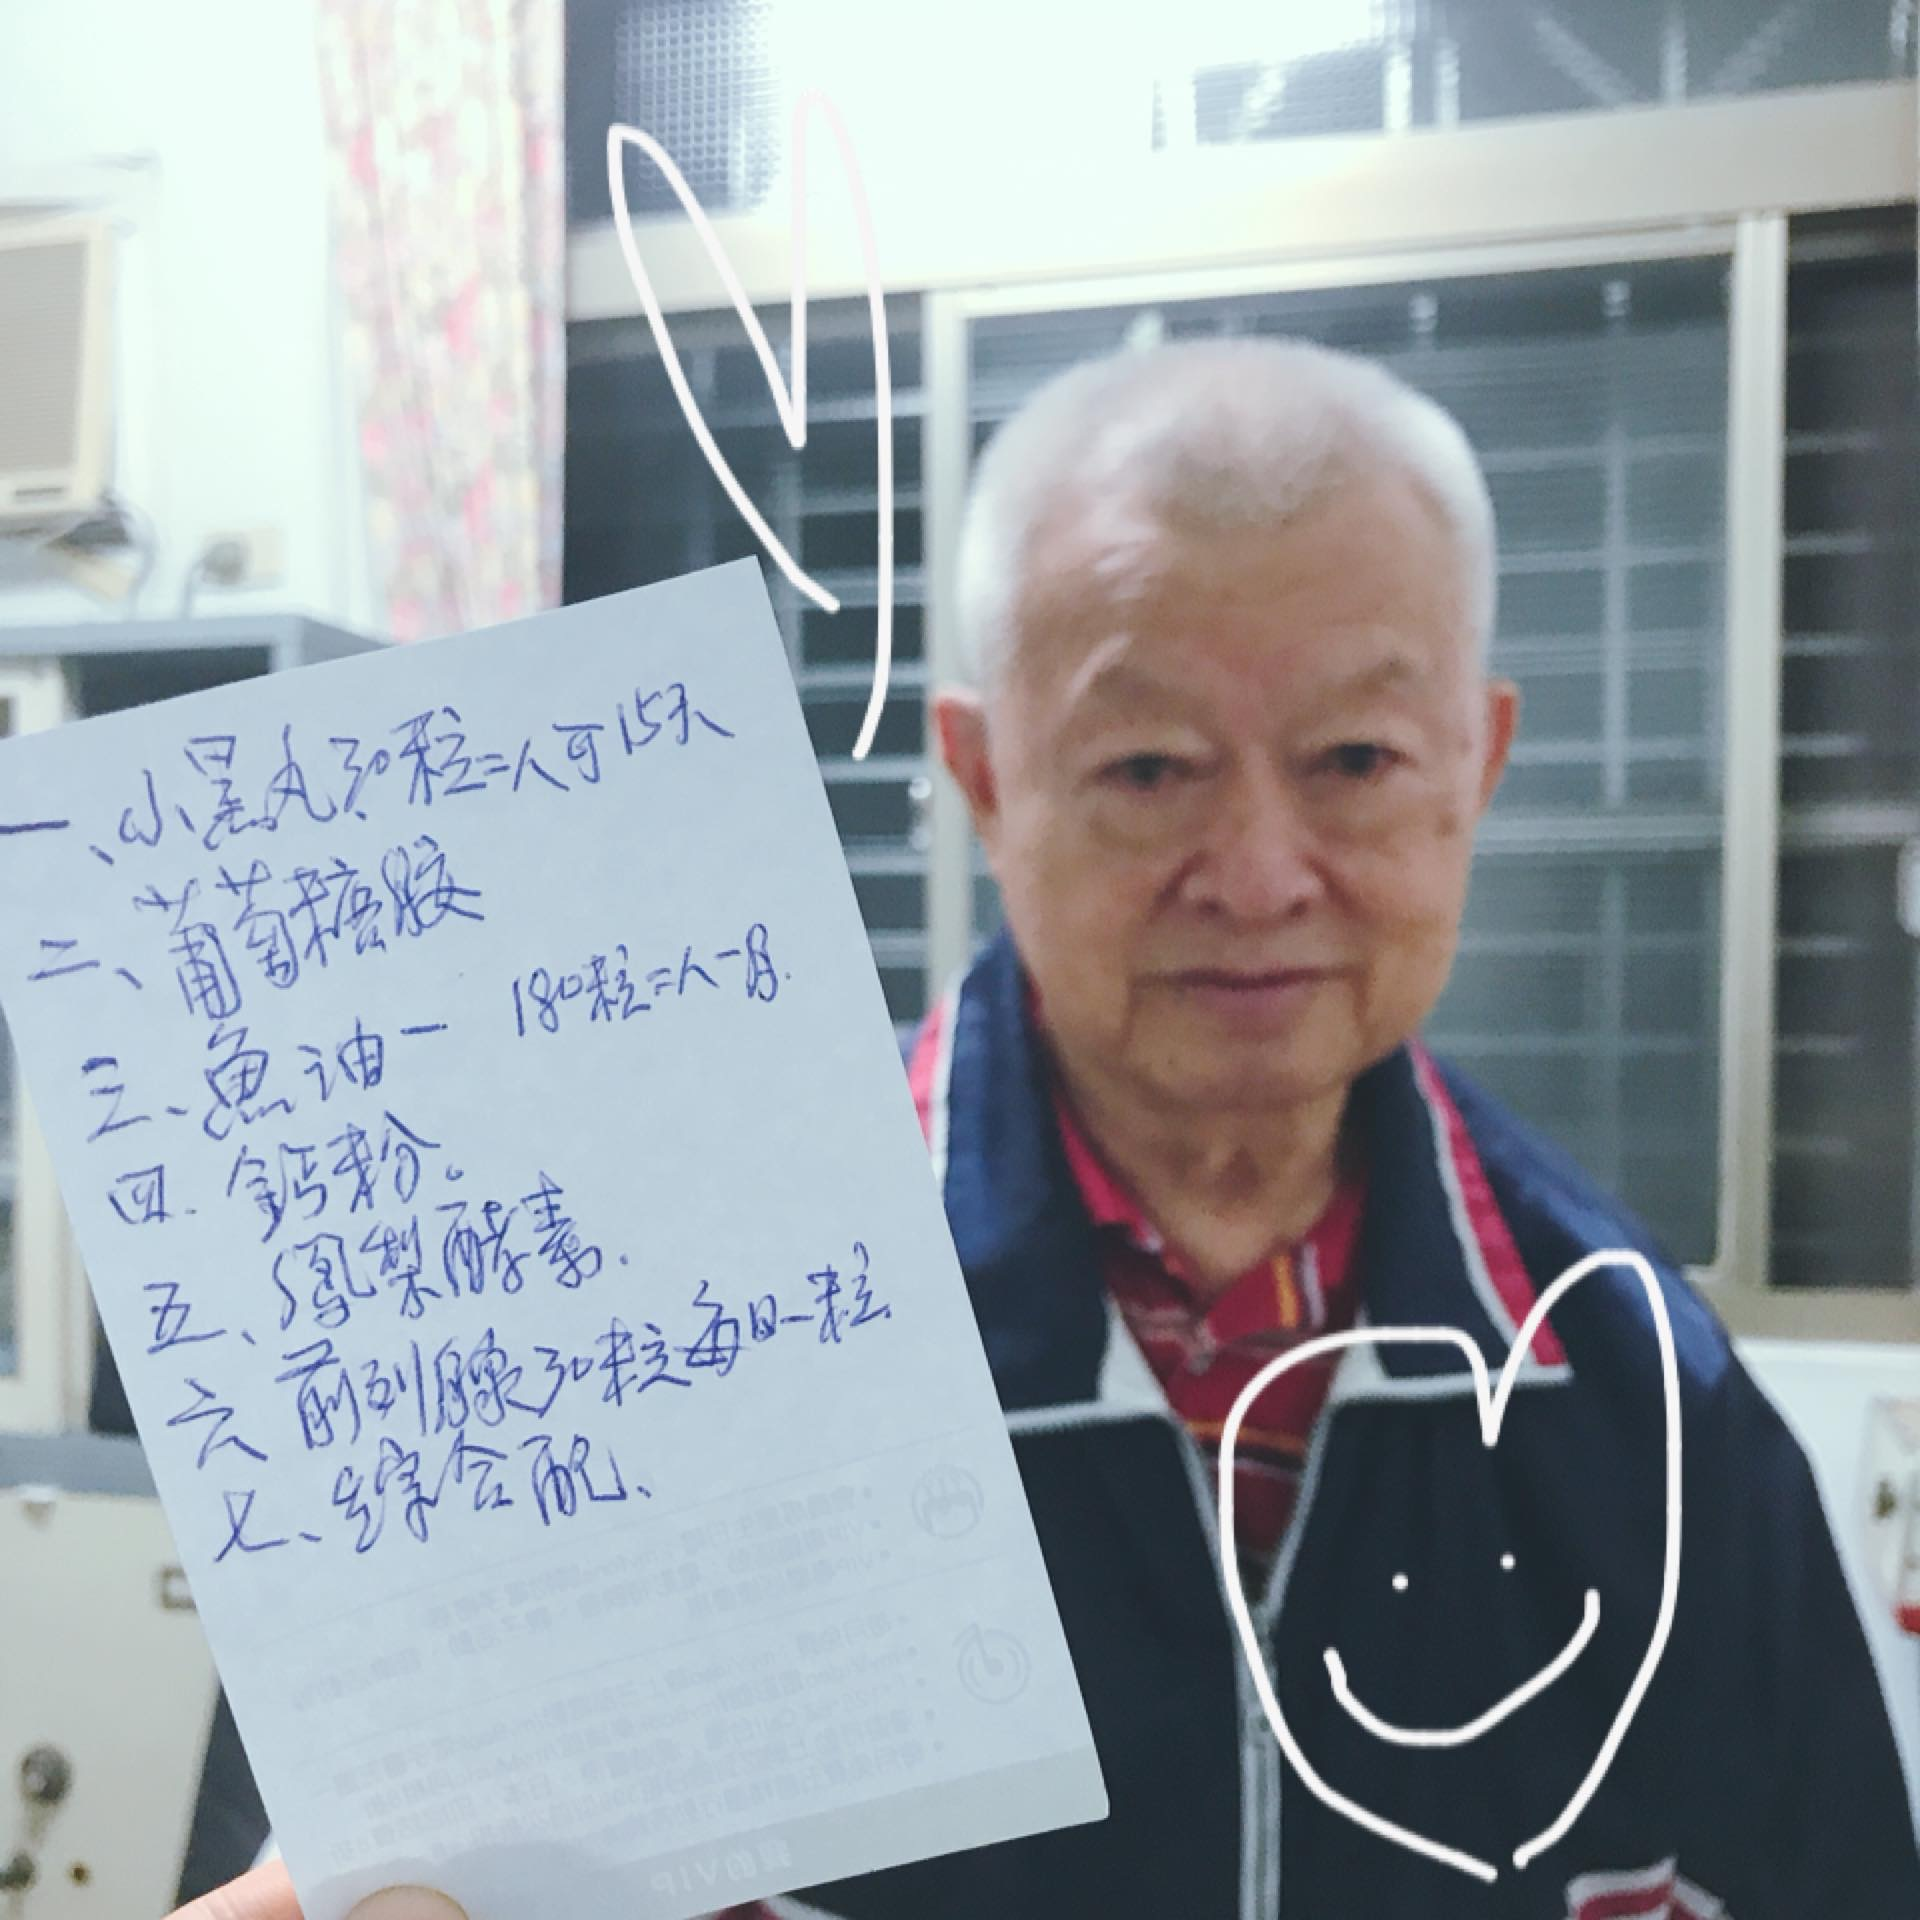 一、小黑丸30粒二人可15天
二、葡萄糖胺
三、魚油一 180粒二人一月.
四.鈣粉。
五、鳳梨酵素.
六 前列腺30粒每日一粒
七、綜合配、